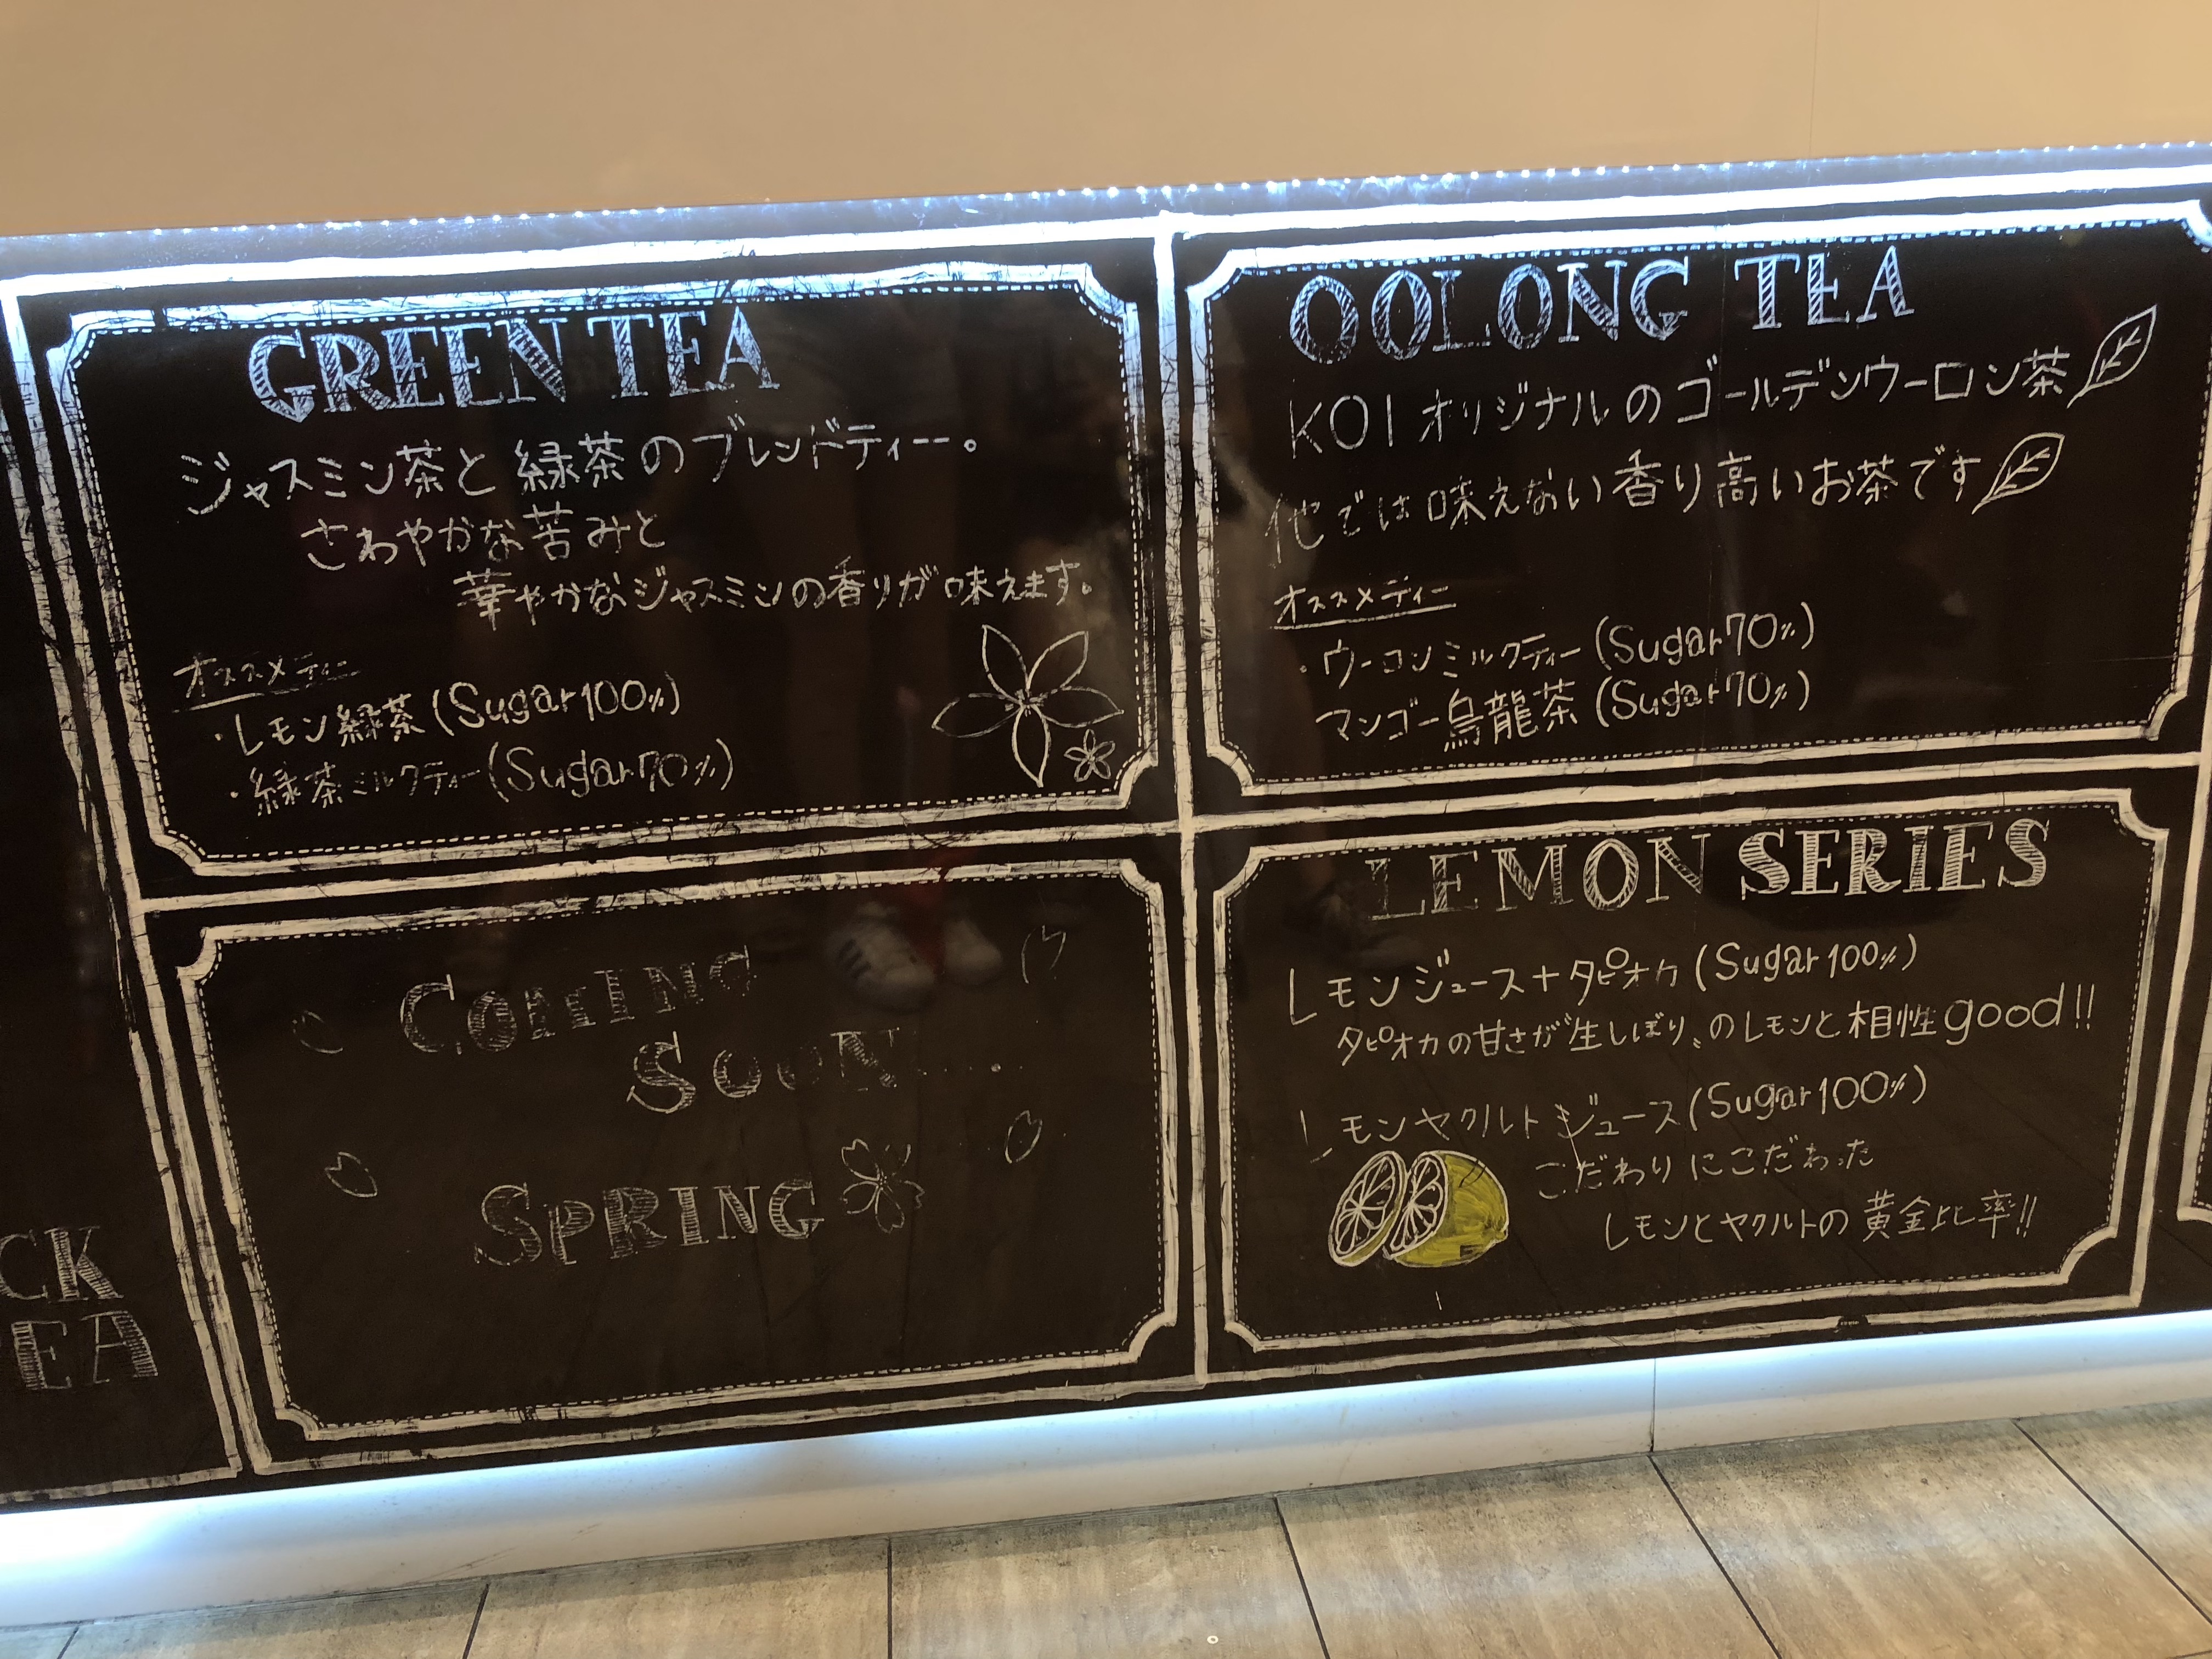 GREEN TEA
ジャスミン茶と緑茶のブレンドティー。
さわやかな苦みと
華やかなジャスミンの香りが味えます。
オススメティー
・レモン緑茶(Sugar100%)
・緑茶ミルクティー(Sugar70%)
OOLONG TEA
KOIオリジナルのゴールデンウーロン茶
他では味えない香り高いお茶です
オススメティー
・ウーロンミルクティー(Sugar70%)
マンゴー烏龍茶(Sugar70%)
CK
EA
COMING
SOON.....
SPRING
LEMON SERIES
レモンジュース+タピオカ(Sugar100%)
タピオカの甘さが"生しぼり"のレモンと相性good!!
レモンヤクルトジュース(Sugar100%)
こだわりにこだわった
レモンとヤクルトの黄金比率!!